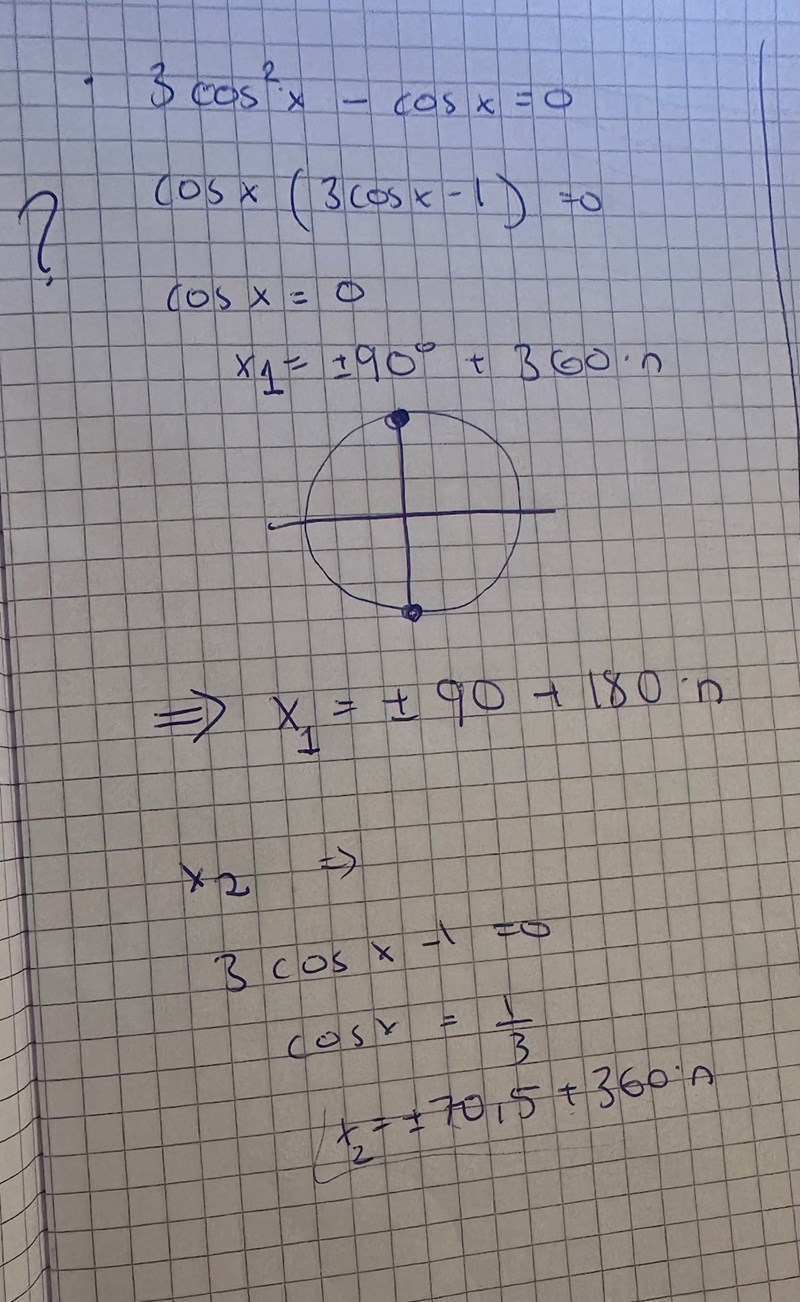 · 3 cos² x - cos x = 0
? cos x (3cosx - 1) = 0
cos x = 0
x₁ = ±90° + 360·n
⇒ x₁ = ± 90 + 180·n
x₂ ⇒
3 cos x - 1 = 0
cos x = 1/3
x₂ = ±70,5 + 360·n